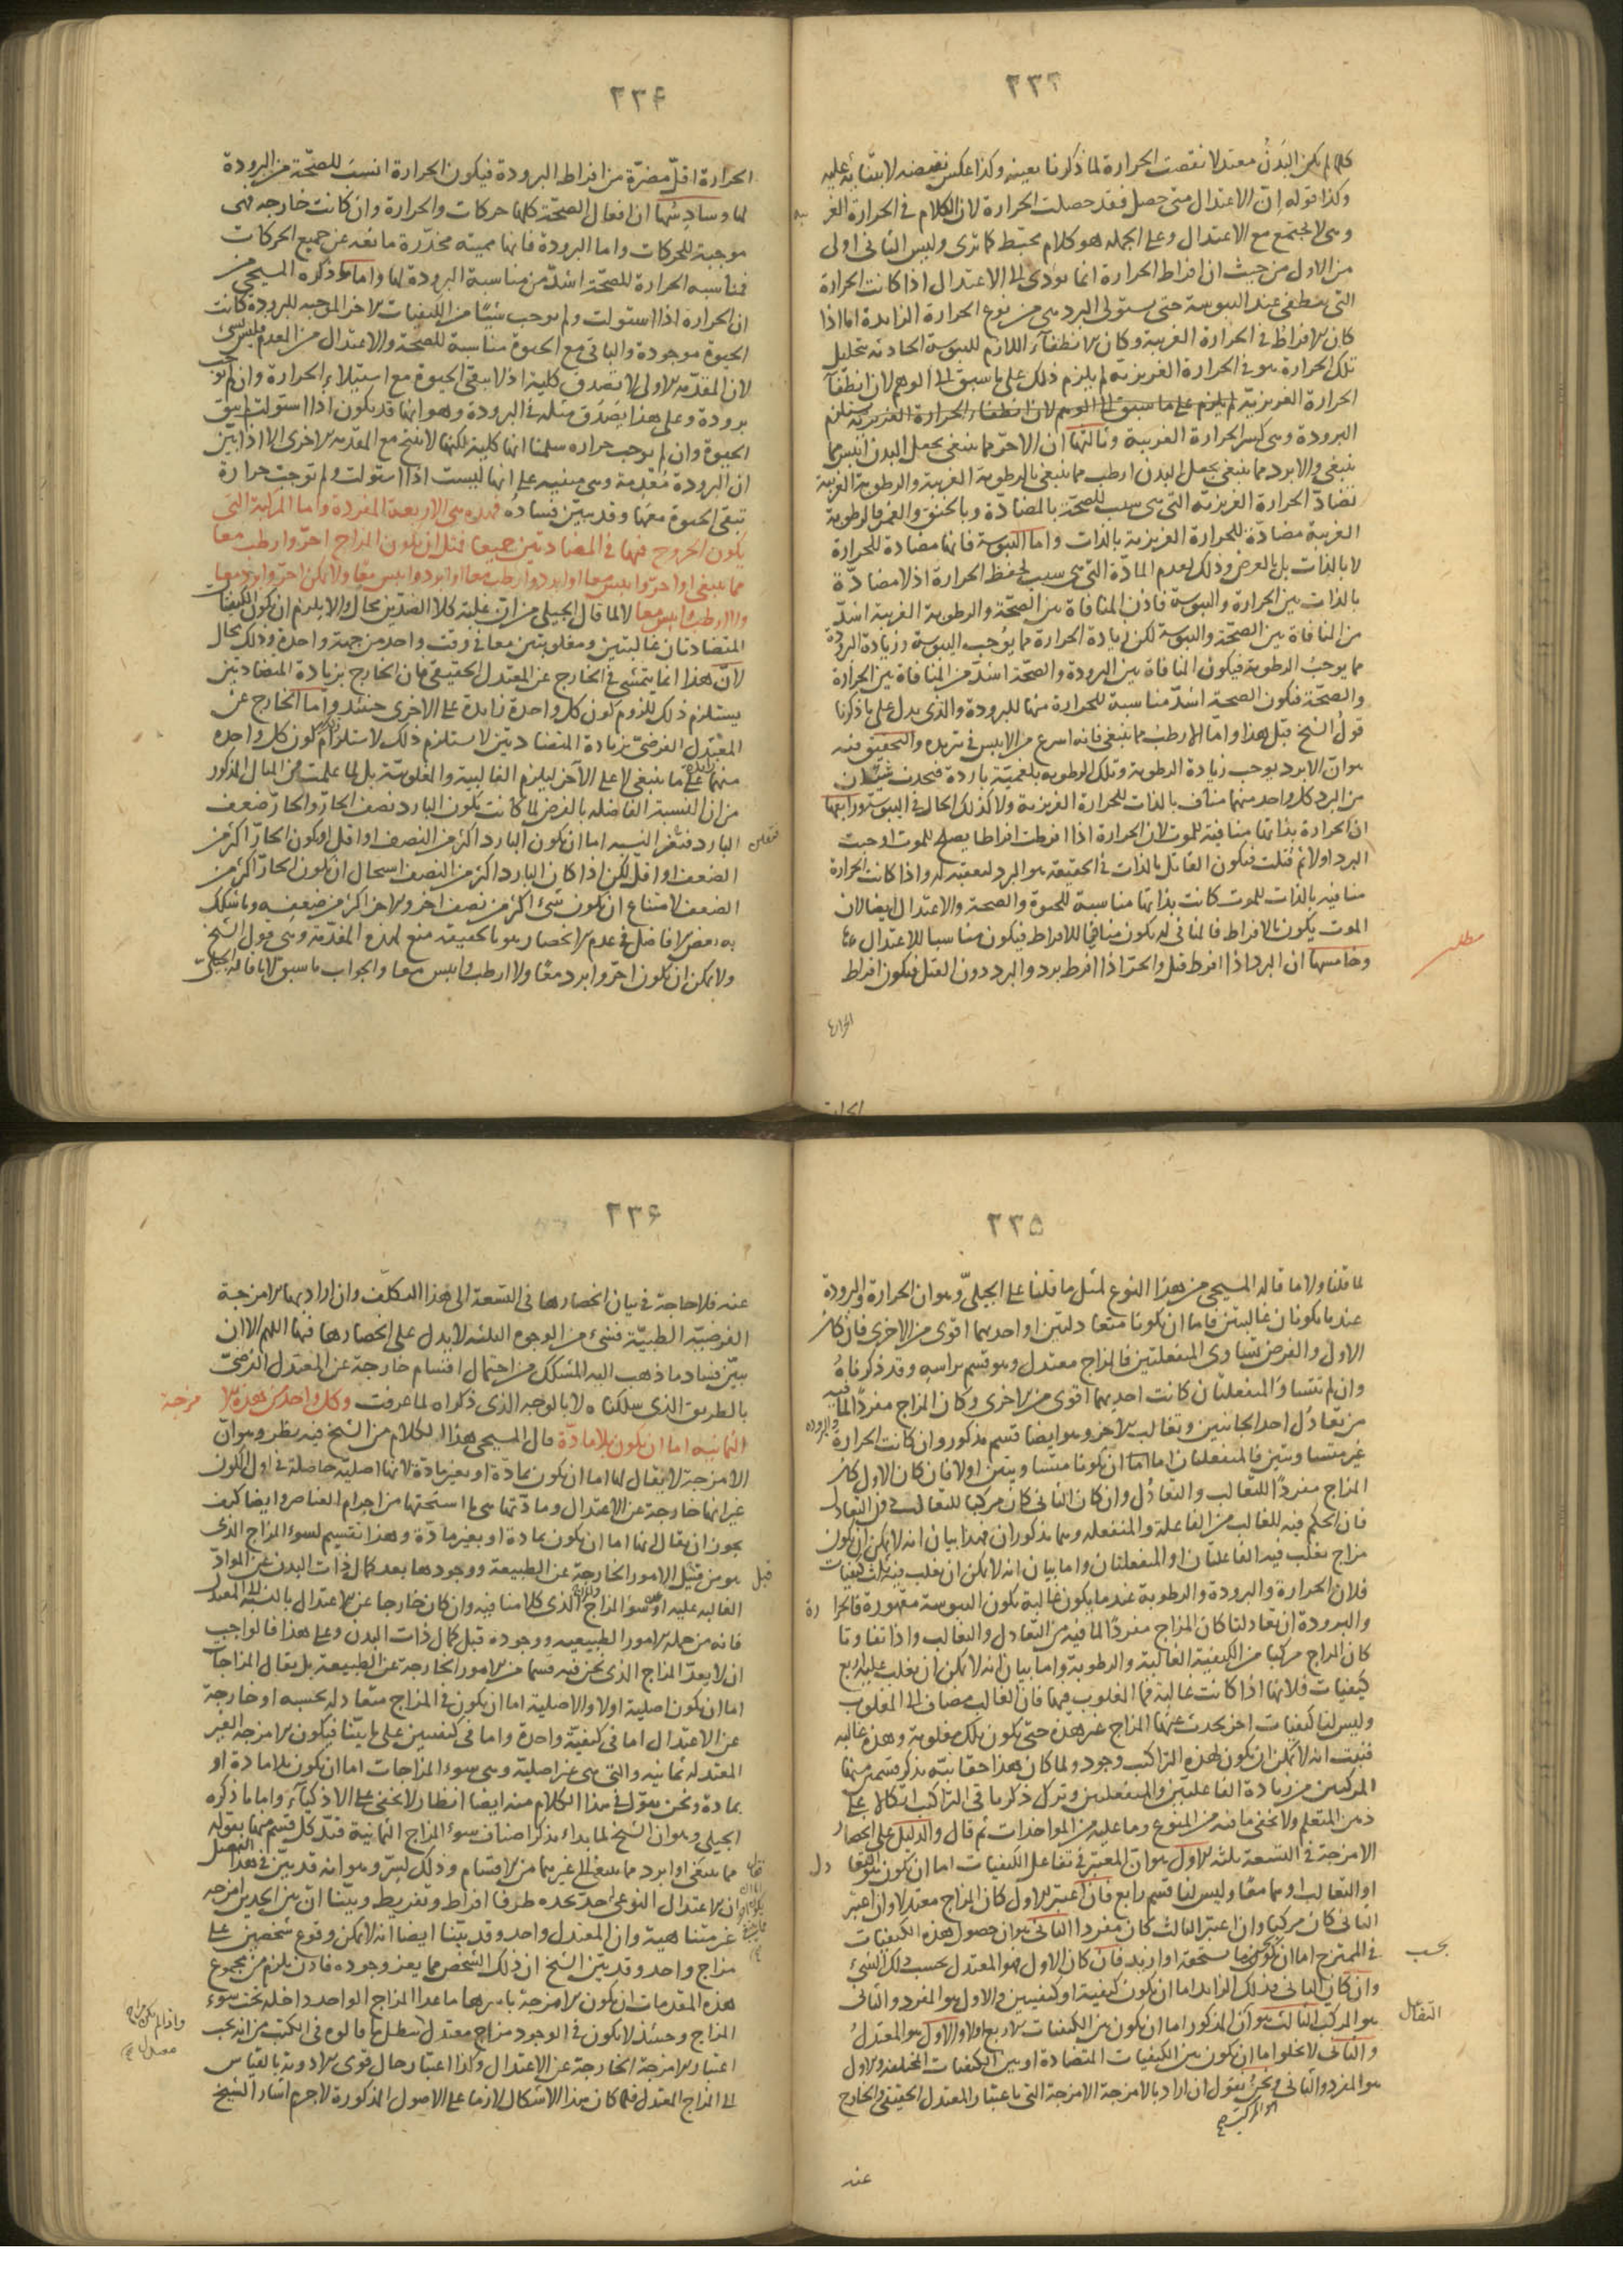 ٢٣٣
كلما لم يكن البدن معتدلا نقصت الحرارة لما ذكرنا بعينه وكذا عكس نقيضه لابتنائه عليه
وكذا قوله ان الاعتدال متى حصل فقد حصلت الحرارة لان الكلام في الحرارة الغر يبه
وهي لا تجتمع مع الاعتدال وعلى الجمله هو كلام مختبط كما ترى وليس الثاني اولى
من الاول من حيث ان افراط الحرارة انما يودي الى الاعتدال اذا كانت الحرارة
التي تنطفي عند اليبوسة حتى يستولي البرد هي من نوع الحرارة الزايدة اما اذا
كان الافراط في الحرارة الغريبة وكان الانطفآء اللازم لليبوسة الحادثه بتحليل
تلك الحرارة هو في الحرارة الغريزيه لم يلزم ذلك على ما سبق الى الوهم لان انطفآ
الحرارة الغريزيّة لم يلزم على ما سبق الى الوهم لان انطفاء الحرارة الغريزية يستلزم
البرودة وهي كسر الحرارة الغريبة وثالثها ان الاحرّ مما ينبغي يجعل البدن ايبس مما
ينبغي والابرد مما ينبغي يجعل البدن ارطب مما ينبغي بالرطوبة الغريبة والرطوبة الغريبة
تضادّ الحرارة الغريزيّه التي هي سبب للصحّة بالمضادّة وبالخنق والغمر فالرطوبة
الغريبة مضادّة للحرارة الغريزية بالذات واما اليبوسة فانها مضادة للحرارة
لا بالذات بل بالعرض وذلك لعدم المادّة التي هي سبب لحفظ الحرارة اذ لا مضادّة
بالذات بين الحرارة واليبوسة فاذن المنافاة بين الصحّة والرطوبة الغريبة اشدّ
من المنافاة بين الصحّة واليبوسة لكن زيادة الحرارة مما يوجب اليبوسة وزيادة البرودة
مما يوجب الرطوبة فيكون المنافاة بين البرودة والصحّة اشدّ من المنافاة بين الحرارة
والصحّة فتكون الصحة اشدّ مناسبة للحرارة منها للبرودة والذي يدل على ما ذكرنا
قول الشيخ قبل هذا واما الارطب مما ينبغي فانه اسرع من الايبس في تبريده والتحقيق فيه
هو انّ الابرد يوجب زيادة الرطوبة وتلك الرطوبه بلغميّة باردة فيحدث شيئان
من البرد كل واحد منهما مناف بالذات للحرارة الغريزية ولا كذلك الحال في اليبوسة ورابعها
ان الحرارة بذاتها منافية للموت لان الحرارة اذا افرطت افراطا يصلح للموت اوجبت
البرد اولا ثم قتلت فيكون القاتل بالذات في الحقيقه هو البرد لتعقبه له واذا كانت الحرارة
منافيه بالذات للموت كانت بذاتها مناسبة للحيوة والصحة والاعتدال ايضا لان
الموت يكون بالافراط فالمنافي له يكون منافيا للافراط فيكون مناسبا للاعتدال
وخامسها ان البرد اذا افرط قتل والحرّ اذا افرط برد والبرد دون القتل فيكون افراط
مطلب
الحرارة
٢٣٤
الحرارة اقلّ مضرّة من افراط البرودة فيكون الحرارة انسب للصحّة من البرودة
لها وسادسها ان افعال الصحّة كلها حركات والحرارة وان كانت خارجه فهي
موجبة للحركات واما البرودة فانها مميته مخدّرة مانعه عن جميع الحركات
فمناسبه الحرارة للصحّة اشدّ من مناسبة البرودة لها واما ما ذكره المسيحي من
ان الحرارة اذا استولت ولم يوجب شيئا من الكيفيات الاخر الموجبه للبرودة كانت
الحيوة موجودة والباقي مع الحيوة مناسبة للصحّة والاعتدال من المعدم فليس بشئ
لان المقدّمه الاولى لا تصدق كلية اذ لا يبقى الحيوة مع استيلاء الحرارة وان لم توجب
برودة وعلى هذا يصدق مثله في البرودة وهو انها قد يكون اذا استولت لم تبق
الحيوة وان لم يوجب حراره سلمنا انها كلية لكنها لا ينتج مع المقدمه الاخرى الا اذا بيّن
ان البرودة مُعْدِمة وهي مبنيه على انها ليست اذا استولت ولم توجب حرارة
تبقى الحيوة معها وقد بيّن فساده فهذه هي الاربعة المفردة واما المركبة التي
يكون الخروج فيها في المضادتين جميعا فمثل ان يكون المزاج احرّ وارطب معا
مما ينبغي او احرّ وايبس معا او ابرد وارطب معا او ابرد وايبس معا ولا يمكن احر وابرد معا
ولا ارطب وايبس معا لا لما قال الجيلي من ان غلبة كلا الضدّين محال والا يلزم ان يكون الكيفيتان
المتضادتان غالبتين ومغلوبتين معا في وقت واحد من جهة واحدة وذلك محال
لانّ هذا انما يتمشى في الخارج عن المعتدل الحقيقي فان الخارج بزيادة المتضادتين
يستلزم ذلك للزوم كون كل واحدة زايدة على الاخرى حينئذ واما الخارج عن
المعتدل الفرضيّ بزيادة المتضادتين لا يستلزم ذلك لاستلزام ذلك كون كل واحده
منهما زايدة على ما ينبغي لا على الآخر ليلزم الغالبية والمغلوبيّة بل لما علمت من المثال المذكور
من ان النسبة الفاضله بالفرض لما كانت بكون البارد نصف الحارّ والحارّ ضعف
البارد فتغير النسبه اما ان يكون البارد اكثر من النصف او اقل او يكون الحارّ اكثر من
الضعف او اقل لكن اذا كان البارد اكثر من النصف استحال ان يكون الحارّ اكثر من
الضعف لامتناع ان يكون شئ اكثر من نصف اخر والاخر اكثر من ضعفه وما شكك
به بعض الافاضل في عدم الانحصار هو بالحقيقه منع لهذه المقدّمة وهي قول الشيخ
ولا يمكن ان يكون احرّ وابرد معًا ولا ارطب وايبس معا والجواب ما سبق لا ما قاله الجيليّ
٢٣٥
لما قلنا ولا ما قاله المسيحي من هذا النوع لمثل ما قلنا على الجيليّ وهو ان الحرارة والبرودة
عندما يكونان غالبتين فاما ان يكونا متعادلتين او احديهما اقوى من الاخرى فان كان
الاول والفرض تساوي المنفعلتين فالمزاج معتدل وهو قسم براسه وقد ذكرناهُ
وان لم تتساو المنفعلتان كانت احديهما اقوى من الاخرى وكان المزاج مفردا لما فيه
من تعادُل احد الجانبين وتغالب الاخر وهو ايضا قسم مذكور وان كانت الحرارة والبرودة
غير متساويتين فالمنفعلتان اما ان يكونا متساويتين اولا فان كان الاول كان
المزاج مفردًا للتغالب والتعادُل وان كان الثاني كان مركبا للتغالب في التعادل
فان الحكم فيه للغالب من الفاعلة والمنفعله وهما مذكوران فهذا بيان انه لا يمكن ان يكون
مزاج تغلب فيه الفاعلتان او المنفعلتان واما بيان انه لا يمكن ان يغلب فيه ثلث كيفيات
فلان الحرارة والبرودة والرطوبة عندما يكون غالبة تكون اليبوسة مقهورة فالحرا رة
والبرودة ان تعادلتا كان المزاج مفردًا لما فيه من التعادل والتغالب واذا تفاوتا
كان المزاج مركبا من الكيفيّة الغالبة والرطوبة واما بيان انه لا يمكن ان يغلب عليه اربع
كيفيات فلانها اذا كانت غالبة فما المغلوب فيها فان الغالب مضاف الى المغلوب
وليس لنا كيفيات اخر يحدث عنها المزاج غير هذه حتى يكون تلك مغلوبة وهذه غالبه
فثبت انه لا يمكن ان يكون لهذه التراكيب وجود ولما كان هذا حقا نبّه بذكر قسمين منها
المركبين من زيادة الفاعلتين والمنفعلتين وترك ذكر باقي التراكيب اتكالا على
ذهن المتعلم ولا يخفى ما فيه من المنوع وما عليه من المواخذات ثم قال والدليل على انحصار
الامزجة في التسعة ثلثه الاول هو انّ المعتبر في تفاعل الكيفيات اما ان يكون هو التعا دل
او التغالب او هما معًا وليس لنا قسم رابع فان اعتبر الاول كان المزاج معتدلا وان اعتبر
الثاني كان مركبا وان اعتبر الثالث كان مفردا الثاني هو ان حصول هذه الكيفيات
في الممتزج اما ان يكون بحسب ما يستحقه او ازيد فان كان الاول فهو المعتدل بحسب ذلك الشئ
وان كان الثاني فذلك الزايد اما ان يكون كيفية او كيفيتين والاول هو المفرد والثاني
هو المركب الثالث هو ان المذكور اما ان يكون بين الكيفيات الاربع اولا والاول هو المعتدل
والثاني لا يخلوا اما ان يكون بين الكيفيات المتضادة او بين الكيفيات المختلفه والاول
هو المفرد والثاني هو المركب ونحن نقول ان اراد بالامزجة الامزجة التي باعتبار المعتدل الحقيقي والخارج
بحسب
التفاعل
عنه
٢٣٦
عنه فلا حاجة في بيان انحصارها في التسعة الى هذا التكلّف وان اراد بها الامزجة
الفرضيّه الطبيّة فشئ من الوجوه الثلثه لا يدل على انحصارها فيها اللهم الا ان
يبيّن فساد ما ذهب اليه المشكك من احتمال اقسام خارجة عن المعتدل الفرضيّ
بالطريق الذي سلكناه لا بالوجه الذي ذكراه لما عرفت وكل واحد من هذه الا مزجة
الثمانيه اما ان يكون بلا مادّة قال المسيحي هذا الكلام من الشيخ فيه نظر وهو انّ
الامزجة لا يقال لها اما ان يكون بمادّة او بغير مادّة لانها اصليّه حاصلة في اول الكون
غير انها خارجة عن الاعتدال ومادّتها هي ما استحقتها من اجرام العناصر وايضا كيف
يجوز ان يقال لها اما ان يكون بمادة او بغير مادّة وهذا تقسيم لسوء المزاج الذي
هو من قبيل الامور الخارجة عن الطبيعة ووجودها بعد كمال ذات البدن من الموادّ
الغالبه عليه او سوء المزاج الذي كلامنا فيه وان كان خارجا عن الاعتدال بالنسبة الى المعتدل
فانه من جمله الامور الطبيعيه ووجوده قبل كمال ذات البدن وعلى هذا فالواجب
ان لا يعدّ المزاج الذي نحن فيه قسما من الامور الخارجة عن الطبيعة بل يقال المزاجات
اما ان يكون اصلية اولا والاصلية اما ان يكون في المزاج متعادله بحسبه او خارجة
عن الاعتدال اما في كيفيّة واحدة واما في كيفيتين على ما بيّنا فيكون الامزجة الغير
المعتدله ثمانيه والتي هي غير اصليّة وهي سوء المزاجات اما ان يكون بلا مادة او
بمادة ونحن نقول في هذا الكلام منه ايضا انظار لا تخفى على الاذكيآء واما ما ذكره
الجيلي وهو ان الشيخ لما بداء بذكر اصناف سوء المزاج الثمانية قيّد كل قسم منها بقوله
مما ينبغي او ابرد مما ينبغي الى غيرهما من الاقسام وذلك لسرّ وهو انه قد بيّن في هذا الفصل
ان الاعتدال النوعي احد بحده طرفا افراط وتفريط وبيّنا انّ بين الحدين امزجه
غير متناهية وان المعتدل واحد وقد بيّنا ايضا انه لا يمكن وقوع شخصين على
مزاج واحد وقد بيّن الشيخ ان ذلك الشخص مما يعز وجوده فاذن يلزم من مجموع
هذه المقدمات ان يكون الامزجة باسرها ما عدا المزاج الواحد داخلة تحت سوء
المزاج وحينئذ لا يكون في الوجود مزاج معتدل فبطل ما قالوه في الكتب من انه يجب
اعتبار الامزجة الخارجة عن الاعتدال وكذا اعتبار حال قوى الادوية بالقياس
الى المزاج المعتدل فلما كان هذا الاشكال لازما على الاصول المذكورة لا جرم اشار الشيخ